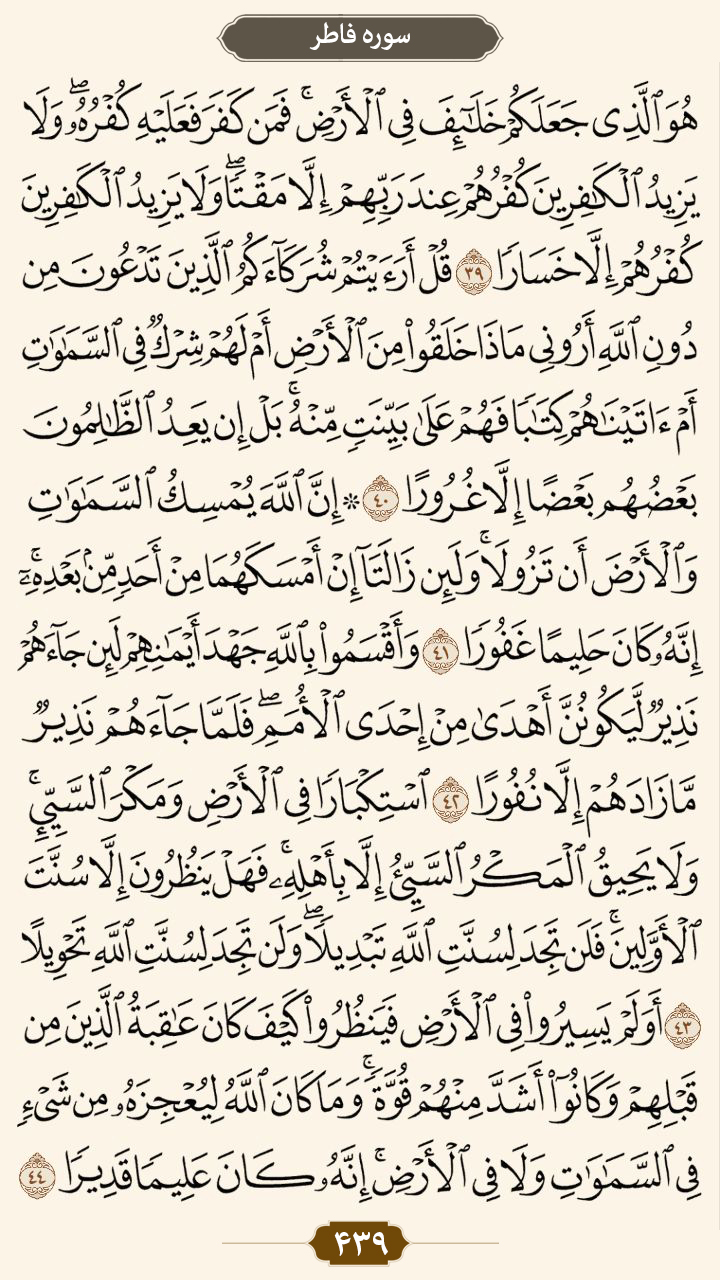 سوره فاطر
هُوَ ٱلَّذِى جَعَلَكُمْ خَلَـٰٓئِفَ فِى ٱلْأَرْضِ ۚ فَمَن كَفَرَ فَعَلَيْهِ كُفْرُهُۥ ۖ وَلَا
يَزِيدُ ٱلْكَـٰفِرِينَ كُفْرُهُمْ عِندَ رَبِّهِمْ إِلَّا مَقْتًا ۖ وَلَا يَزِيدُ ٱلْكَـٰفِرِينَ
كُفْرُهُمْ إِلَّا خَسَارًا ٣٩ قُلْ أَرَءَيْتُمْ شُرَكَآءَكُمُ ٱلَّذِينَ تَدْعُونَ مِن
دُونِ ٱللَّهِ أَرُونِى مَاذَا خَلَقُوا۟ مِنَ ٱلْأَرْضِ أَمْ لَهُمْ شِرْكٌ فِى ٱلسَّمَـٰوَٰتِ
أَمْ ءَاتَيْنَـٰهُمْ كِتَـٰبًا فَهُمْ عَلَىٰ بَيِّنَتٍ مِّنْهُ ۚ بَلْ إِن يَعِدُ ٱلظَّـٰلِمُونَ
بَعْضُهُم بَعْضًا إِلَّا غُرُورًا ٤٠ * إِنَّ ٱللَّهَ يُمْسِكُ ٱلسَّمَـٰوَٰتِ
وَٱلْأَرْضَ أَن تَزُولَا ۚ وَلَئِن زَالَتَآ إِنْ أَمْسَكَهُمَا مِنْ أَحَدٍ مِّنۢ بَعْدِهِۦٓ ۚ
إِنَّهُۥ كَانَ حَلِيمًا غَفُورًا ٤١ وَأَقْسَمُوا۟ بِٱللَّهِ جَهْدَ أَيْمَـٰنِهِمْ لَئِن جَآءَهُمْ
نَذِيرٌ لَّيَكُونُنَّ أَهْدَىٰ مِنْ إِحْدَى ٱلْأُمَمِ ۖ فَلَمَّا جَآءَهُمْ نَذِيرٌ
مَّا زَادَهُمْ إِلَّا نُفُورًا ٤٢ ٱسْتِكْبَارًا فِى ٱلْأَرْضِ وَمَكْرَ ٱلسَّيِّئِ ۚ
وَلَا يَحِيقُ ٱلْمَكْرُ ٱلسَّيِّئُ إِلَّا بِأَهْلِهِۦ ۚ فَهَلْ يَنظُرُونَ إِلَّا سُنَّتَ
ٱلْأَوَّلِينَ ۚ فَلَن تَجِدَ لِسُنَّتِ ٱللَّهِ تَبْدِيلًا ۖ وَلَن تَجِدَ لِسُنَّتِ ٱللَّهِ تَحْوِيلًا
٤٣ أَوَلَمْ يَسِيرُوا۟ فِى ٱلْأَرْضِ فَيَنظُرُوا۟ كَيْفَ كَانَ عَـٰقِبَةُ ٱلَّذِينَ مِن
قَبْلِهِمْ وَكَانُوٓا۟ أَشَدَّ مِنْهُمْ قُوَّةً ۚ وَمَا كَانَ ٱللَّهُ لِيُعْجِزَهُۥ مِن شَىْءٍ
فِى ٱلسَّمَـٰوَٰتِ وَلَا فِى ٱلْأَرْضِ ۚ إِنَّهُۥ كَانَ عَلِيمًا قَدِيرًا ٤٤
۴۳۹